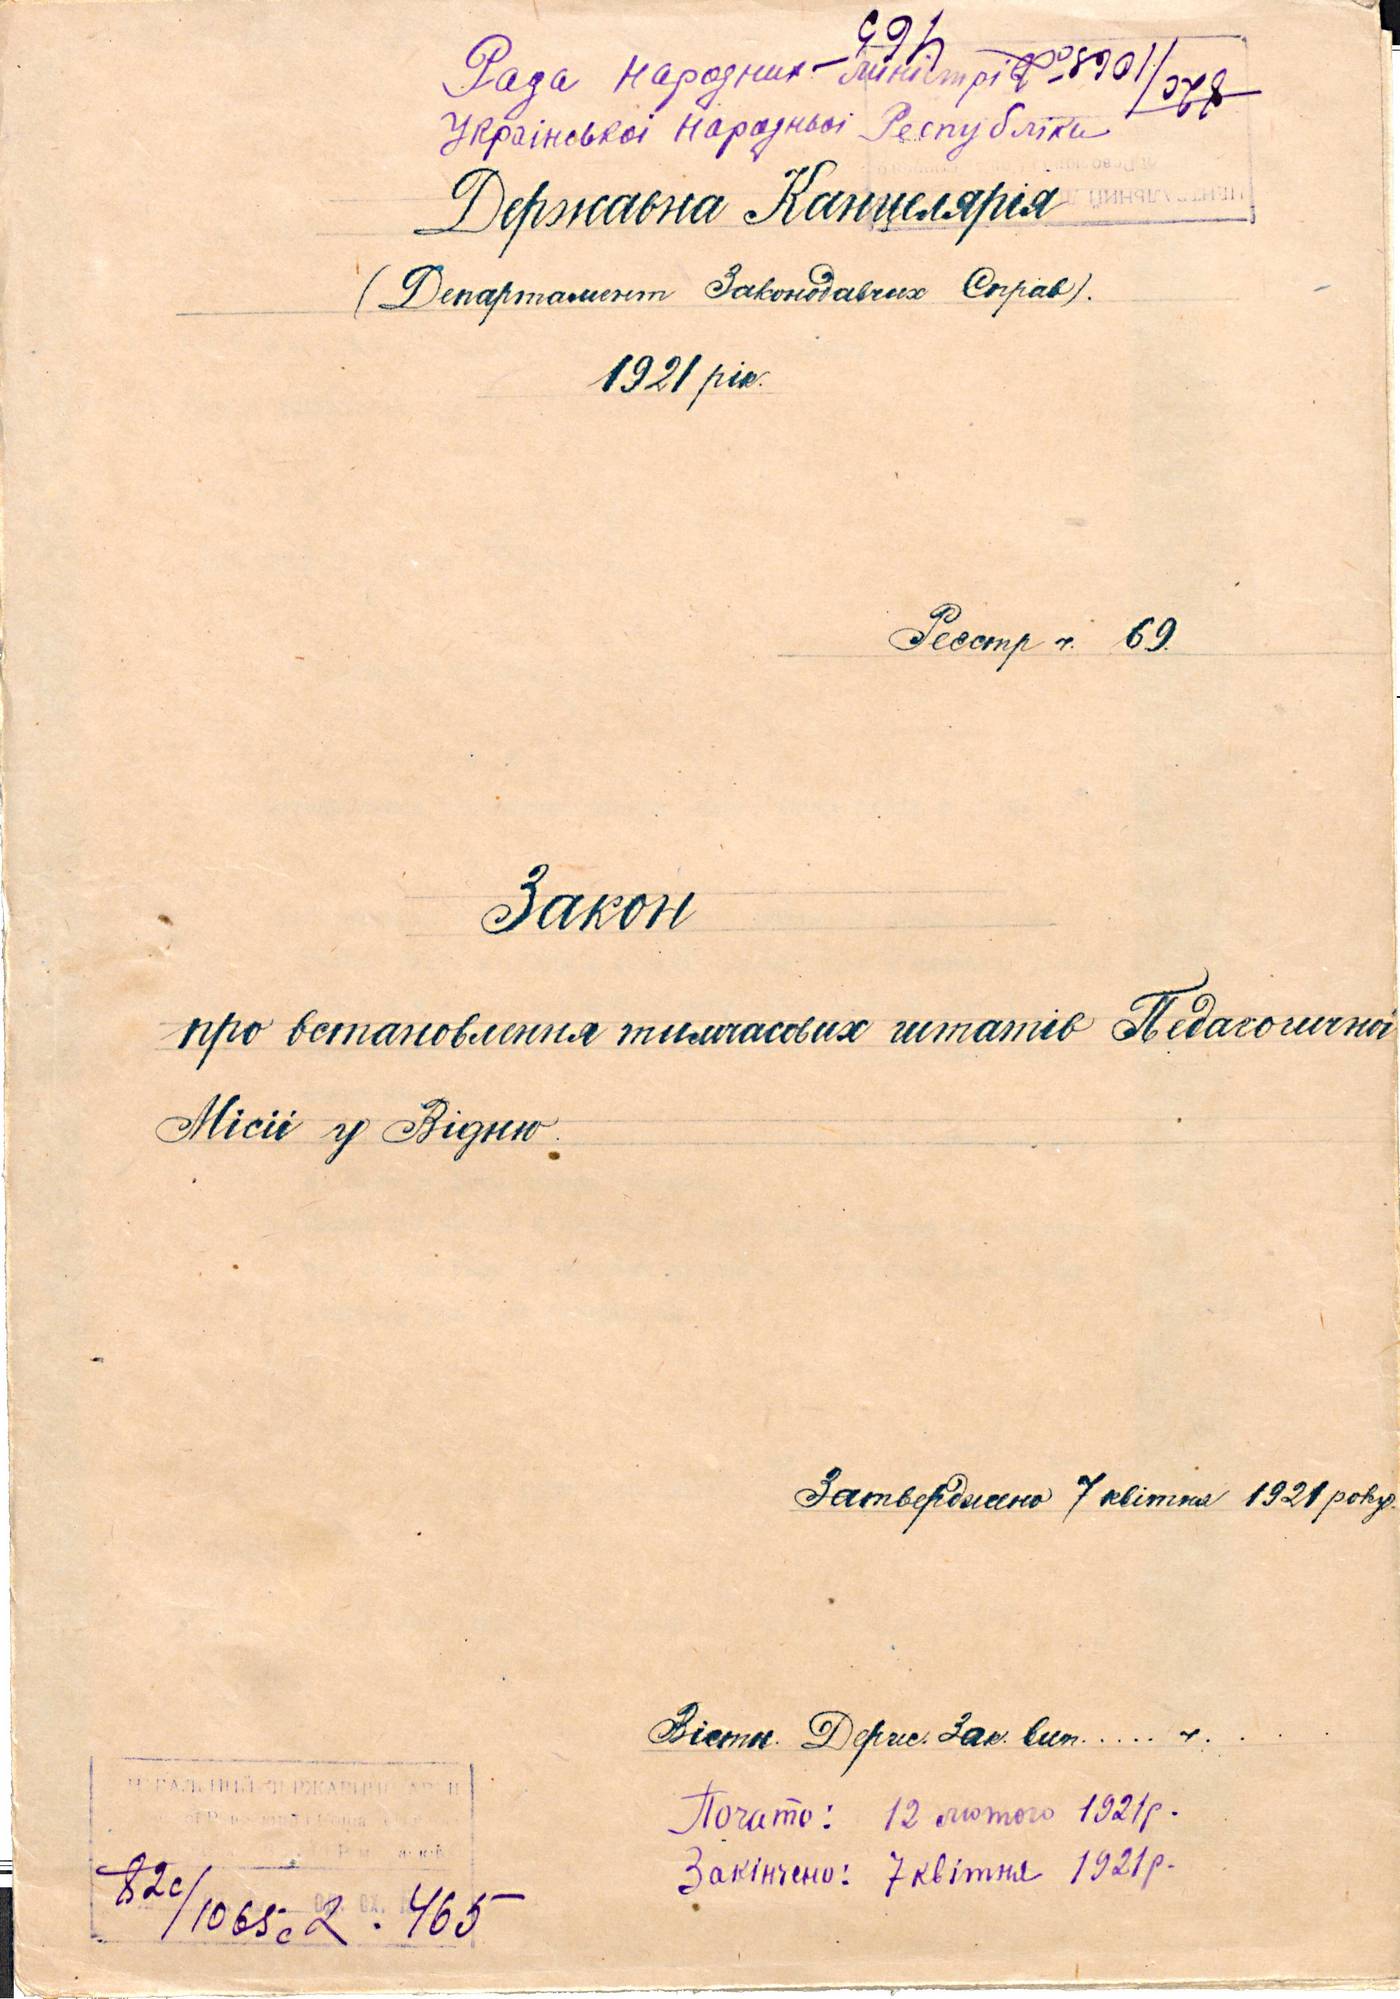 Рада народних міністрів
Української Народньої Республіки
Державна Канцелярія
(Департамент Законодавчих Справ).
1921 рік.
Реєстр ч. 69.
Закон
про встановлення тимчасових штатів Педагогичної
Місії у Відню.
Затверджено 7 квітня 1921 року.
Вістн. Держ. Зак. вип. .... ч. . . .
Почато: 12 лютого 1921р.
Закінчено: 7 квітня 1921р.
82с/1065с 2 . 465